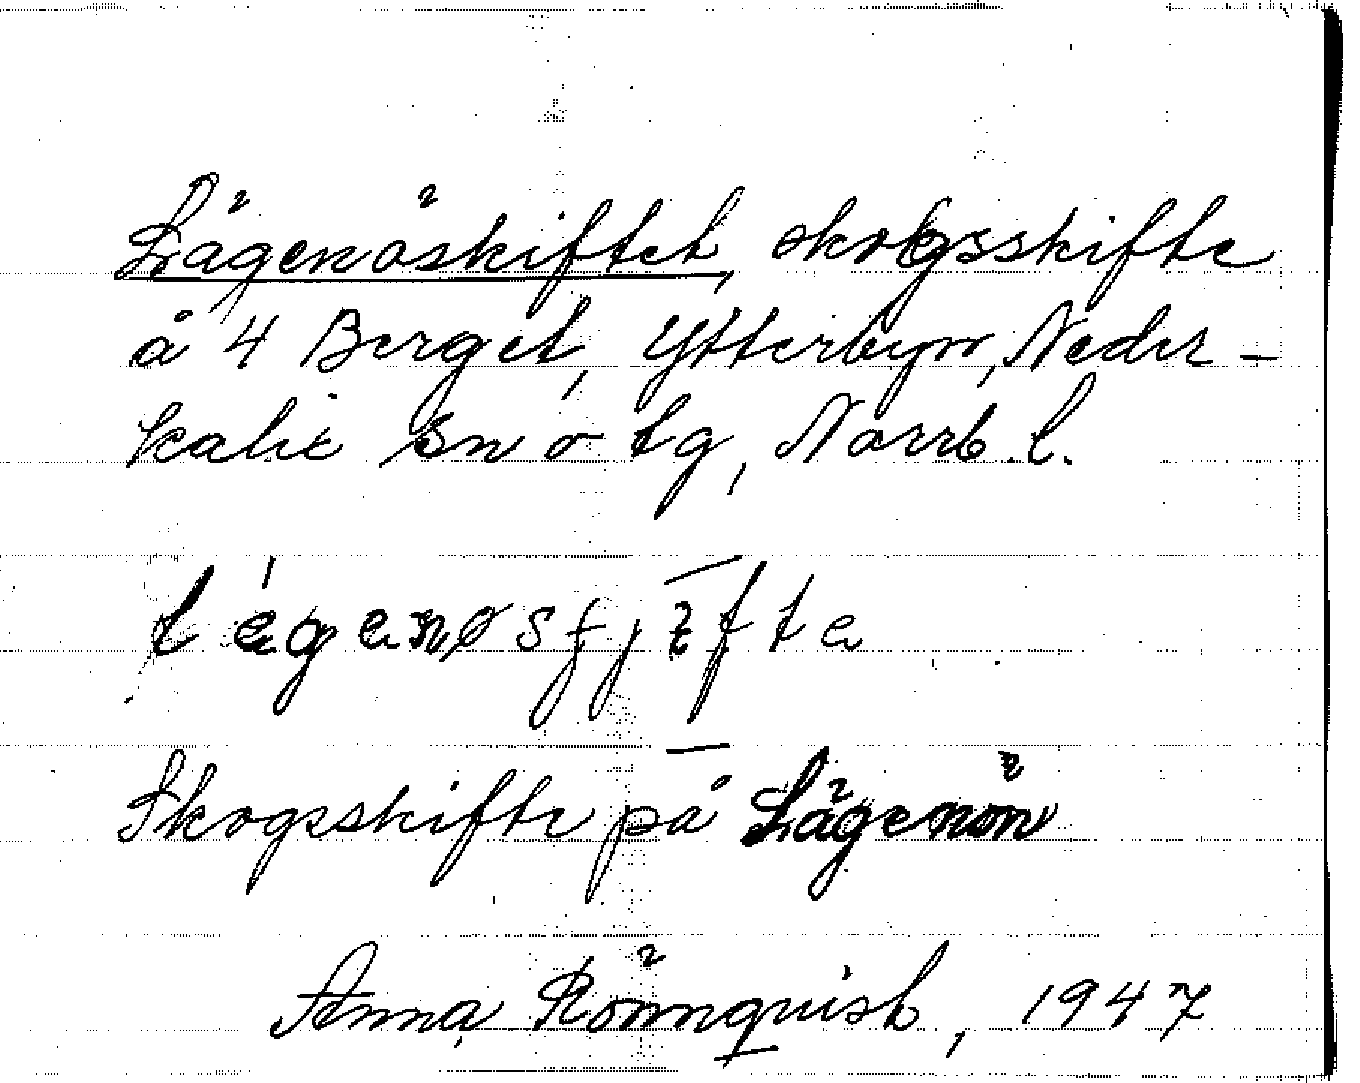 Lägenöskiftet, skogsskifte
å 4 Berget, Ytterbyn, Neder-
kalix sn o tg, Norrb. l.
Skogsskifte på Lägenön
Anna Rönnquist, 1947